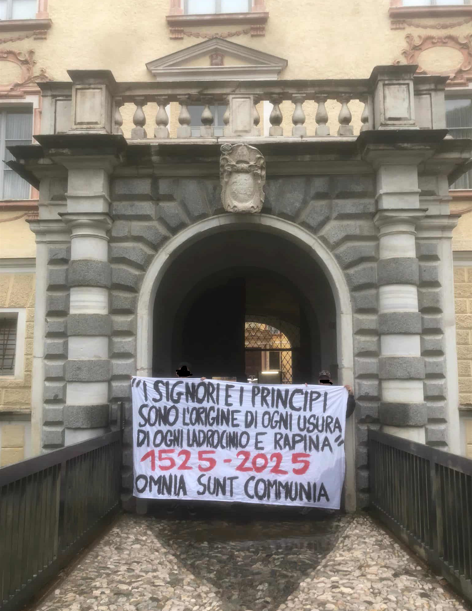 "I SIGNORI E I PRINCIPI
SONO L'ORIGINE DI OGNI USURA
DI OGNI LADROCINIO E RAPINA"
1525-2025
OMNIA SUNT COMMUNIA